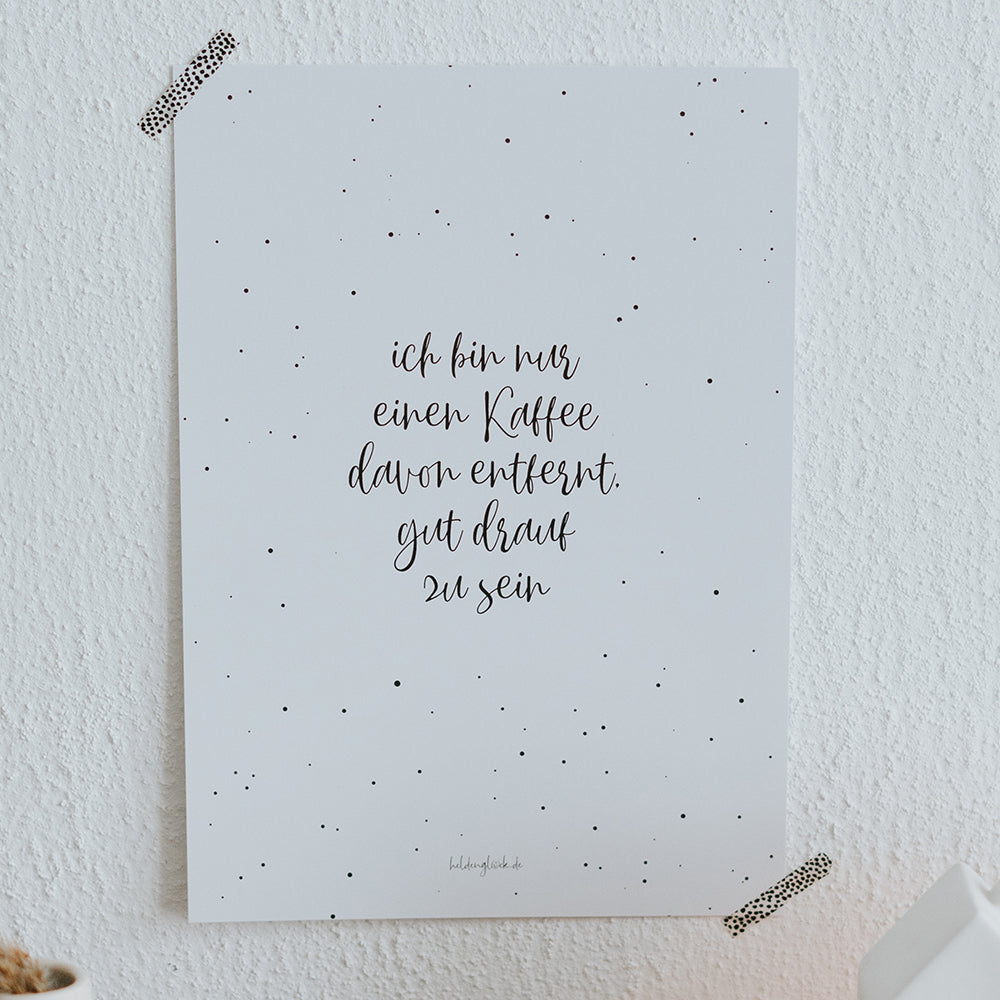 ich bin nur
einen Kaffee
davon entfernt,
gut drauf
zu sein
heldenglück.de